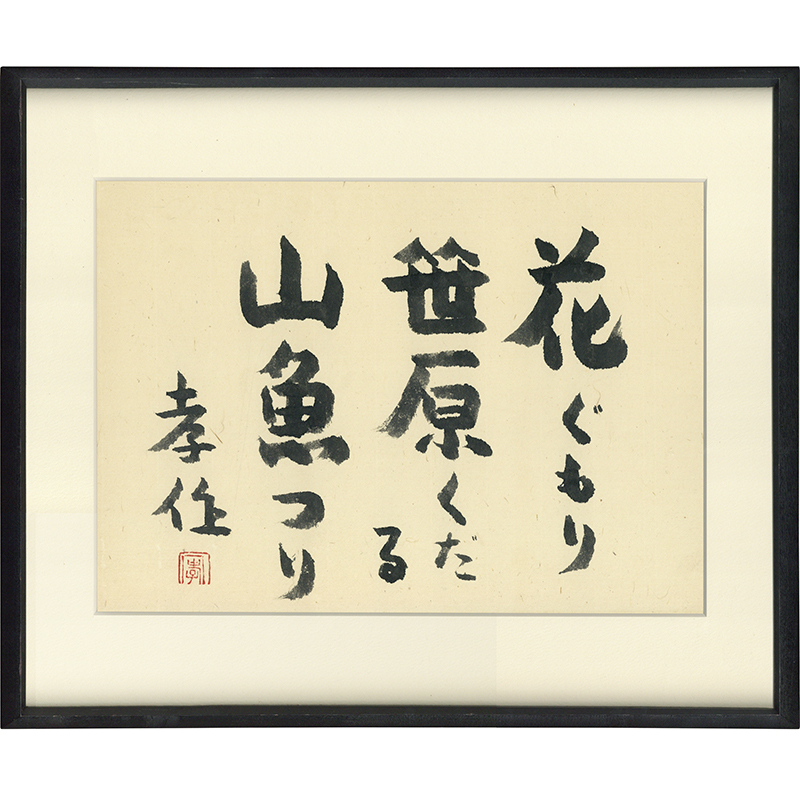 花ぐもり
笹原くだ
る
山魚つり
孝作
孝